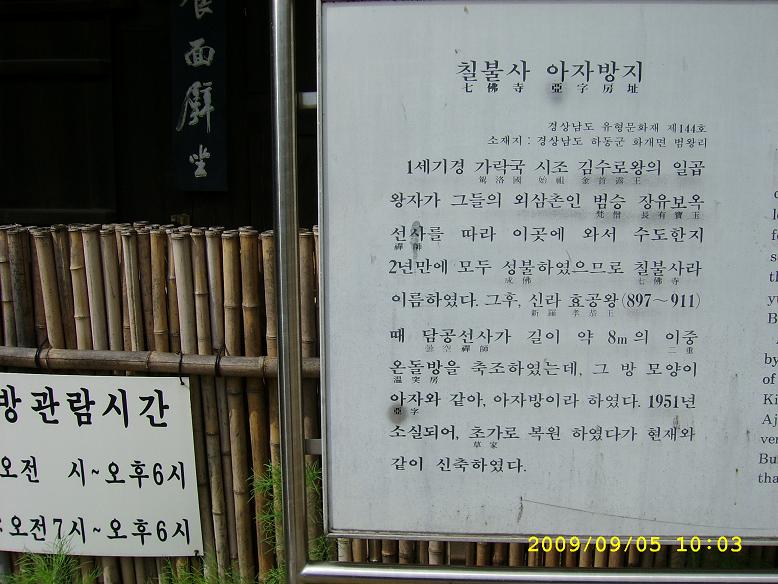 面壁坐
칠불사 아자방지
七佛寺 亞字房址
경상남도 유형문화재 제144호
소재지 : 경상남도 하동군 화개면 범왕리
1세기경 가락국 시조 김수로왕의 일곱
駕洛國 始祖 金首露王
왕자가 그들의 외삼촌인 범승 장유보옥
梵僧 長有寶玉
선사를 따라 이곳에 와서 수도한지
禪師
2년만에 모두 성불하였으므로 칠불사라
成佛 七佛寺
이름하였다. 그후, 신라 효공왕(897~911)
新羅 孝恭王
때 담공선사가 길이 약 8m의 이중
曇空禪師 二重
온돌방을 축조하였는데, 그 방 모양이
溫突房
아자와 같아, 아자방이라 하였다. 1951년
亞字
소실되어, 초가로 복원 하였다가 현재와
草家
같이 신축하였다.
방관람시간
오전 시~오후6시
:오전7시~오후6시
by
of
Ki
Aj
ver
Bu
tha
2009/09/05 10:03